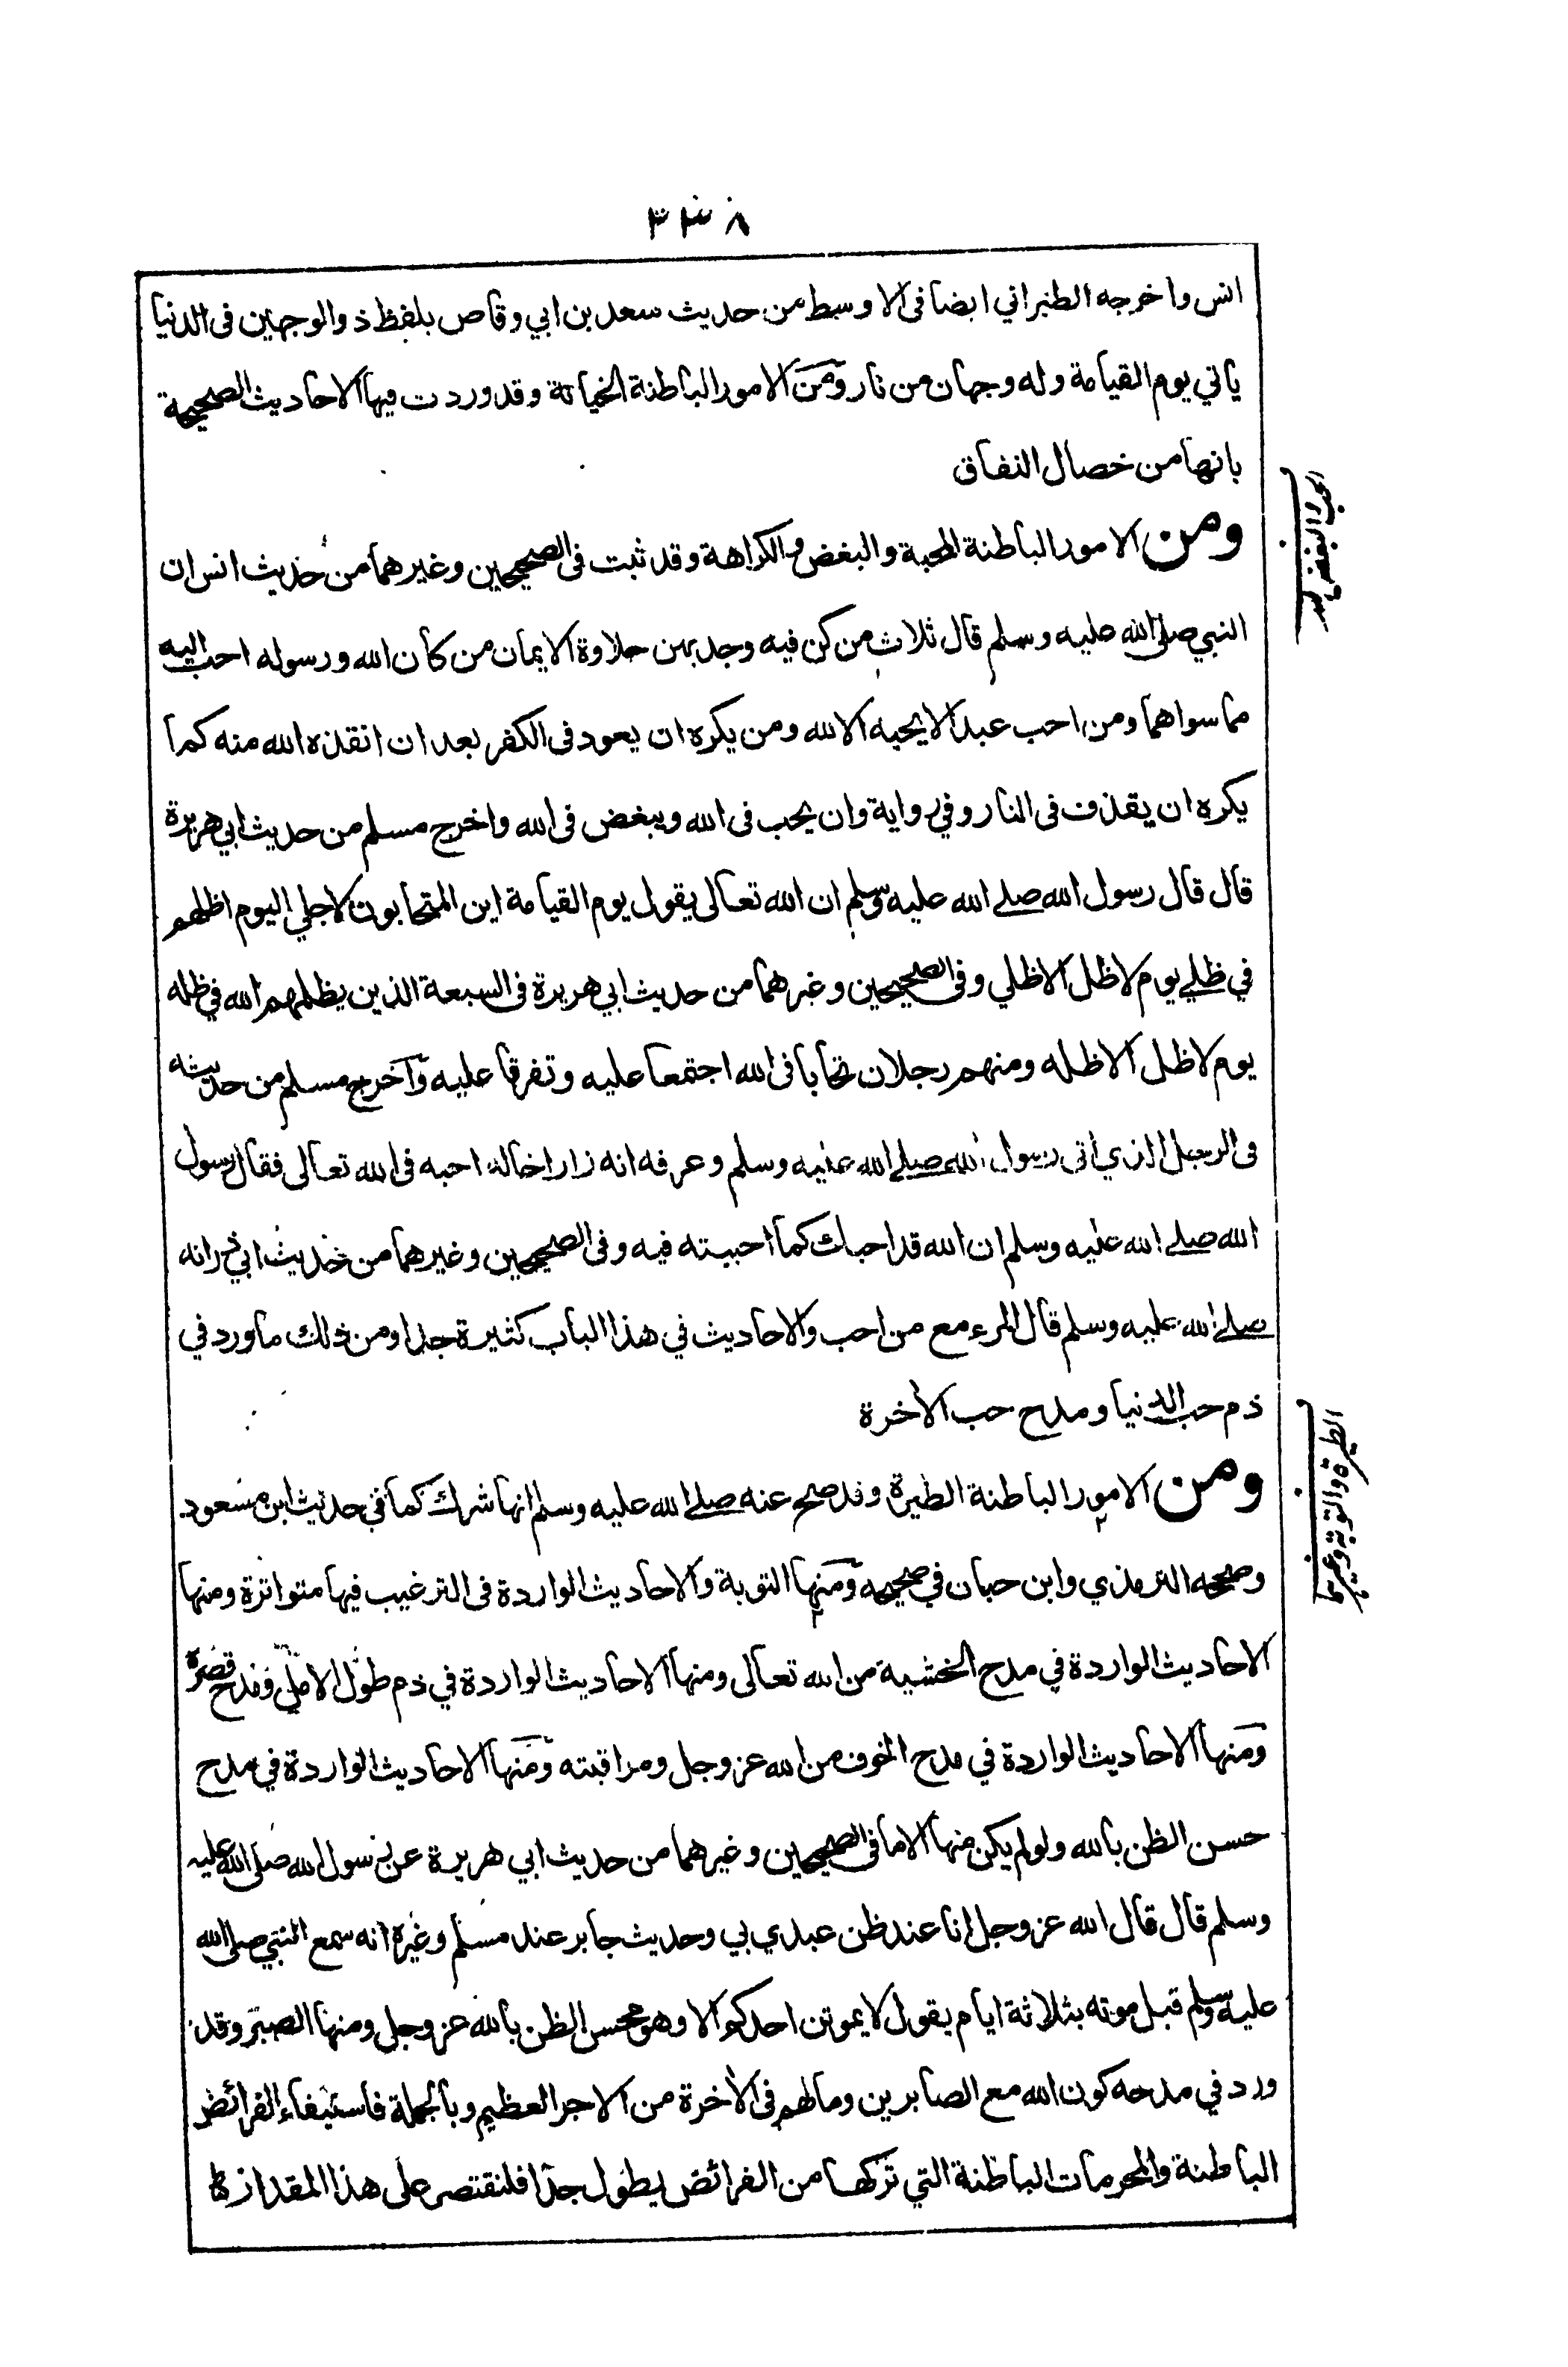 ٣٣٨
انس واخرجه الطبراني ايضا فى الاوسط من حديث سعد بن ابي وقاص بلفظ ذو الوجهين فى الدنيا
ياتي يوم القيامة وله وجهان من نار ومن الامور الباطنة الخيانة وقد وردت فيها الاحاديث الصحيحة
بانها من خصال النفاق
ومن الامور الباطنة المحبة والبغض والكراهة وقد ثبت فى الصحيحين وغيرهما من حديث انس ان
الحب والبغض لله
النبي صلى الله عليه وسلم قال ثلاث من كن فيه وجد بهن حلاوة الايمان من كان الله ورسوله احب اليه
مما سواهما ومن احب عبدا لا يحبه الا لله ومن يكره ان يعود فى الكفر بعد ان انقذه الله منه كما
يكره ان يقذف فى النار وفي رواية وان يحب فى الله ويبغض فى الله واخرج مسلم من حديث ابي هريرة
قال قال رسول الله صلى الله عليه وسلم ان الله تعالى يقول يوم القيامة اين المتحابون لاجلي اليوم اظلهم
في ظلي يوم لا ظل الا ظلي وفى الصحيحين وغيرهما من حديث ابي هريرة فى السبعة الذين يظلهم الله في ظله
يوم لا ظل الا ظله ومنهم رجلان تحابا فى الله اجتمعا عليه وتفرقا عليه واخرج مسلم من حديثه
فى الرجل الذي اتى رسول الله صلى الله عليه وسلم وعرفه انه زار اخا له احبه فى الله تعالى فقال رسول
الله صلى الله عليه وسلم ان الله قد احبك كما احببته فيه وفى الصحيحين وغيرهما من حديث ابي ذر انه
صلى الله عليه وسلم قال المرء مع من احب والاحاديث في هذا الباب كثيرة جدا ومن ذلك ما ورد في
ذم حب الدنيا ومدح حب الآخرة
ومن الامور الباطنة الطيرة وقد صح عنه صلى الله عليه وسلم انها شرك كما في حديث ابن مسعود
الطيرة والتوبة وغيرهما
وصححه الترمذي وابن حبان في صحيحه ومنها التوبة والاحاديث الواردة فى الترغيب فيها متواترة ومنها
الاحاديث الواردة في مدح الخشية من الله تعالى ومنها الاحاديث الواردة في ذم طول الامل ومدح قصره
ومنها الاحاديث الواردة في مدح الخوف من الله عز وجل ومراقبته ومنها الاحاديث الواردة في مدح
حسن الظن بالله ولو لم يكن منها الا ما فى الصحيحين وغيرهما من حديث ابي هريرة عن رسول الله صلى الله عليه
وسلم قال قال الله عز وجل انا عند ظن عبدي بي وحديث جابر عند مسلم وغيره انه سمع النبي صلى الله
عليه وسلم قبل موته بثلاثة ايام يقول لا يموتن احدكم الا وهو يحسن الظن بالله عز وجل ومنها الصبر وقد
ورد في مدحه كون الله مع الصابرين وما لهم فى الآخرة من الاجر العظيم وبالجملة فاستيفاء الفرائض
الباطنة والمحرمات الباطنة التي تركها من الفرائض يطول جدا فلنقتصر على هذا المقدار